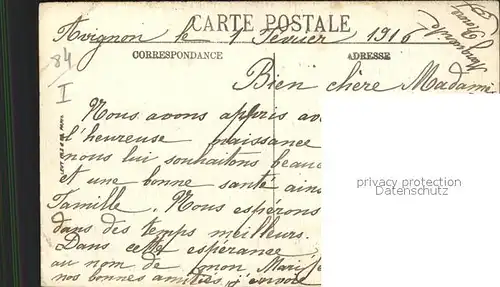 CARTE POSTALE
Avignon le 1 Février 1916
CORRESPONDANCE
ADRESSE
84
I
Bien chère Madame
Nous avons appris av
l'heureuse naissance
nous lui souhaitons beauc
et une bonne santé ains
famille. Nous espérons
dans des temps meilleurs.
Dans cette espérance
au nom de mon Mari
nos bonnes amitiés j'envoie
privacy protection
Datenschutz